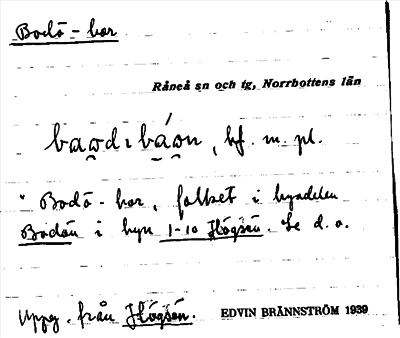 Bodö-bor
Råneå sn och tg, Norrbottens län
bf. m. pl.
"Bodö-bor, folket i byadelen
Bodön i byn 1-10 Högsön. Se d.o.
Uppg. från Högsön. EDVIN BRÄNNSTRÖM 1939